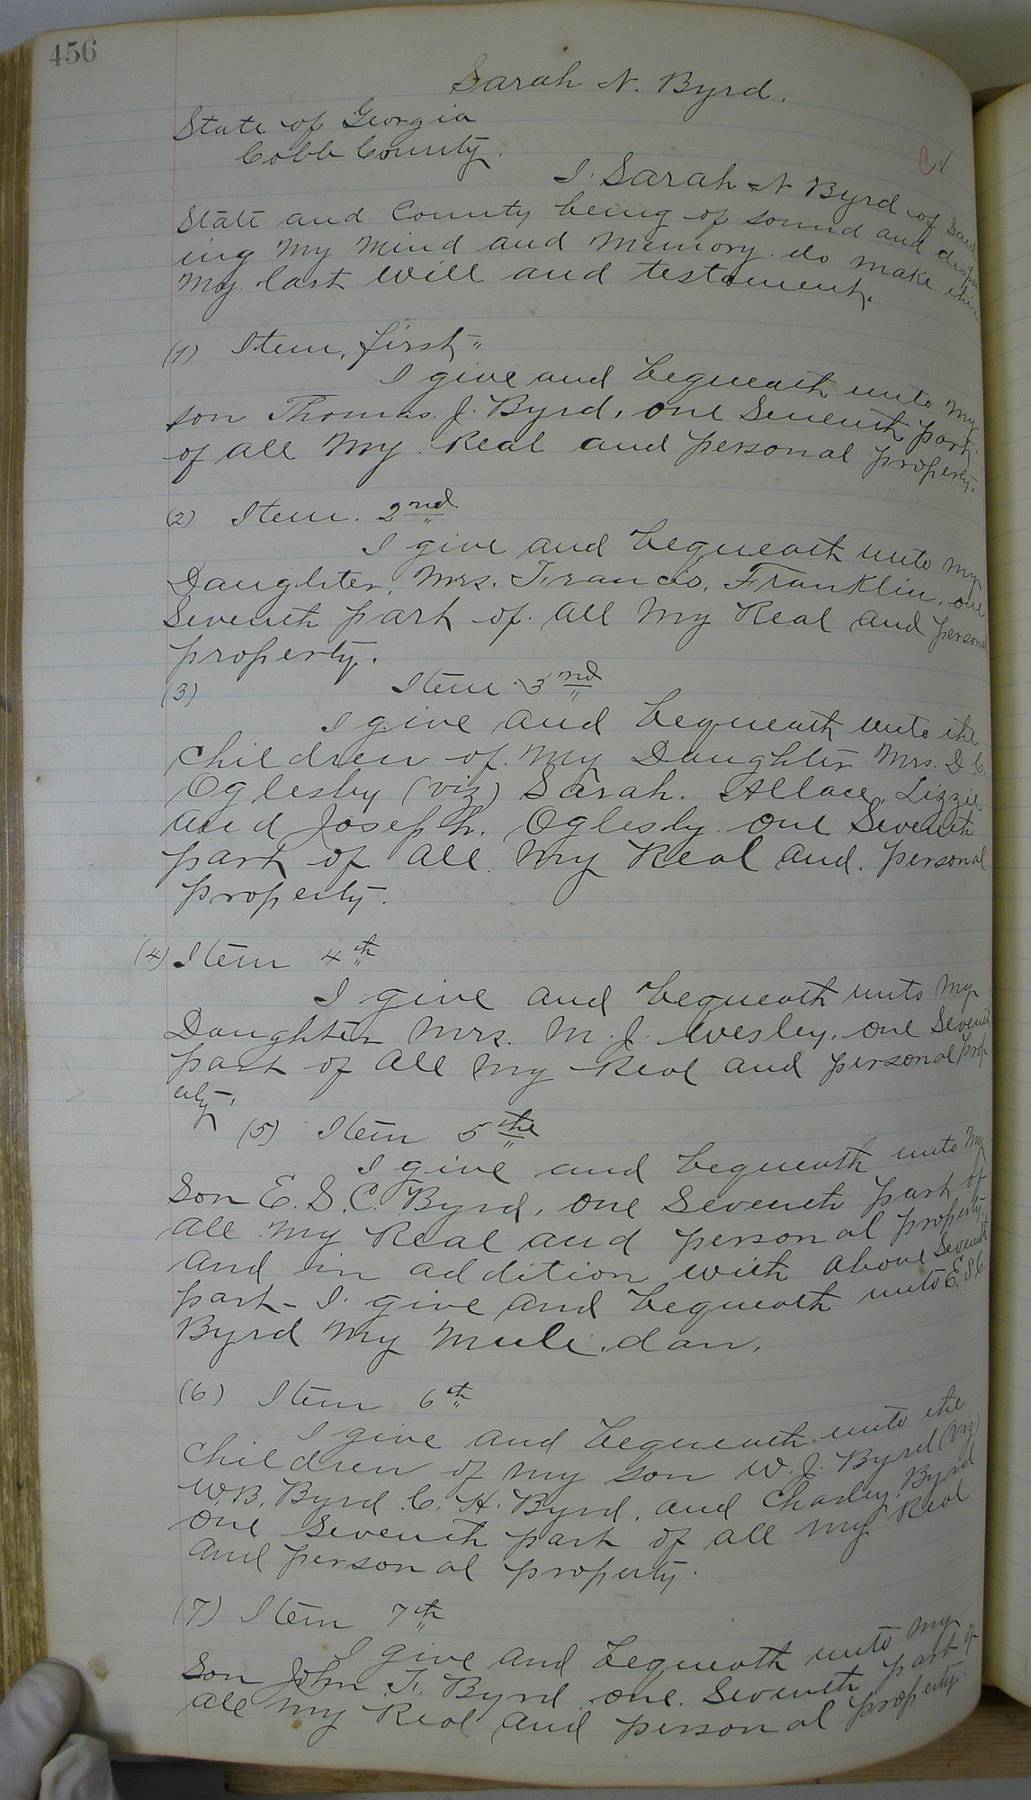 456
Sarah N. Byrd.
State of Georgia
Cobb County.
I. Sarah N Byrd of Said
State and County being of sound and dispos
ing my mind and memory. do make this
my last will and testament.
(1) Item, first,
I give and bequeath unto my
son Thomas. J. Byrd, one Seventh part.
of all my Real and personal property.
(2) Item. 2nd
I give and bequeath unto my
Daughter, Mrs. Francis, Franklin, one
Seventh part of. all my Real and personal
property.
(3) Item 3nd
I give and bequeath unto the
children of. my Daughter Mrs. D. C.
Oglesby (viz) Sarah. Allace, Lizzie
and Joseph. Oglesby one Seventh
part of all my Real and. personal
property.
(4) Item 4th
I give and bequeath unto my
Daughter Mrs. M. J. Wesley, one Seventh
part of all my Real and personal prop
erty.
(5) Item 5the
I give and bequeath unto my
Son E. S. C. Byrd, one Seventh part of
all my Real and personal property,
and in addition with above Seventh
part - I. give and bequeath unto E. S. C
Byrd my mule. dan.
(6) Item 6th
I give and bequeath unto the
children of my son W. J. Byrd (viz)
W. B. Byrd C. H. Byrd, and Charley Byrd
one Seventh part of all my Real
and personal property.
(7) Item 7th
I give and bequeath unto my
Son John T. Byrd one. Seventh part of
all my Real and personal property.